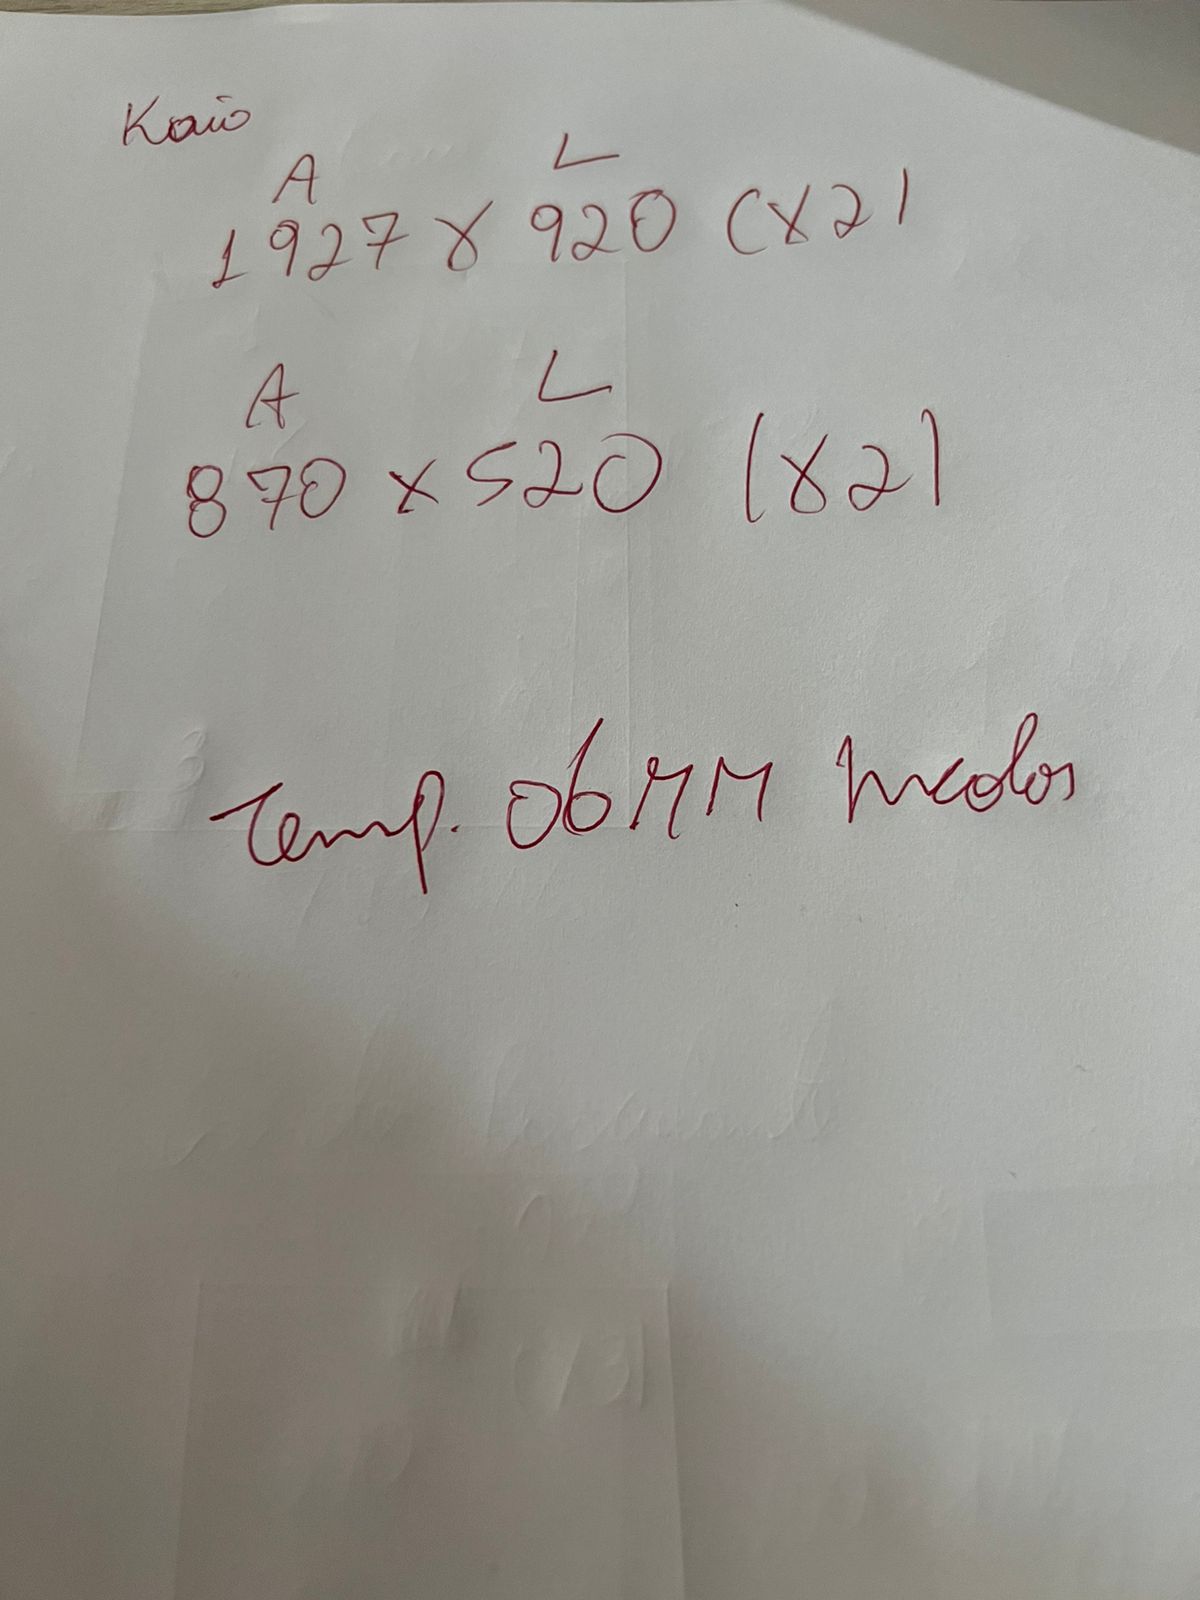 Kaio
A L
1927 x 920 (x2)
A L
870 x 520 (x2)
Temp. 06MM Incolor